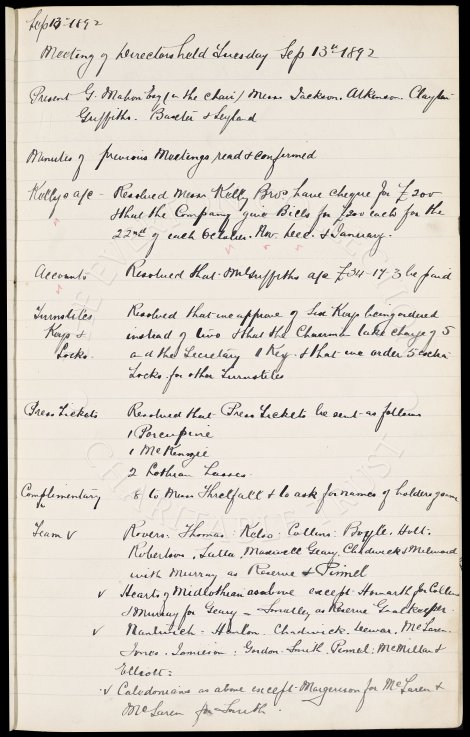 Sep 13th 1892
Meeting of Directors held Tuesday Sep 13th 1892
Present G. Mahon Esq (in the chair) Messrs Jackson. Atkinson. Clayton
Griffiths. Baxter & Leyland
Minutes of previous Meetings read & confirmed
Kellys a/c - Resolved Messrs Kelly Bros have cheque for £200
& that the Company give Bills for £200 each for the
22nd of each October. Nov. Dec. & January.
Accounts Resolved that Mr Griffiths a/c £34-17-3 be paid
Turnstiles Resolved that we approve of Six Keys being ordered
Keys & instead of two & that the Chairman take charge of 5
Locks. and the Secretary 1 Key. & that we order 5 extra
Locks for other Turnstiles
Press Tickets Resolved that Press Tickets be sent as follows
1 Porcupine
1 McKenzie
2 Lothian Lasses
Complimentary 8 to Messrs Threlfall & to ask for names of holders
Team v Rovers. Thomas. Kelso. Collins. Boyle. Holt.
Robertson, Latta, Maxwell Geary, Chadwick & Milward
with Murray as Reserve & Pinnel
v Hearts of Midlothian as above except Howarth for Collins
& Murray for Geary - Smalley as Reserve Goalkeeper.
v Nantwich - Hanlon. Chadwick. Dewar. McLaren.
Jones. Jamieson. Gordon. Smith. Pinnel. McMillan &
Elliott:
v Caledonians as above except Margerison for McLaren &
McLaren for Smith.